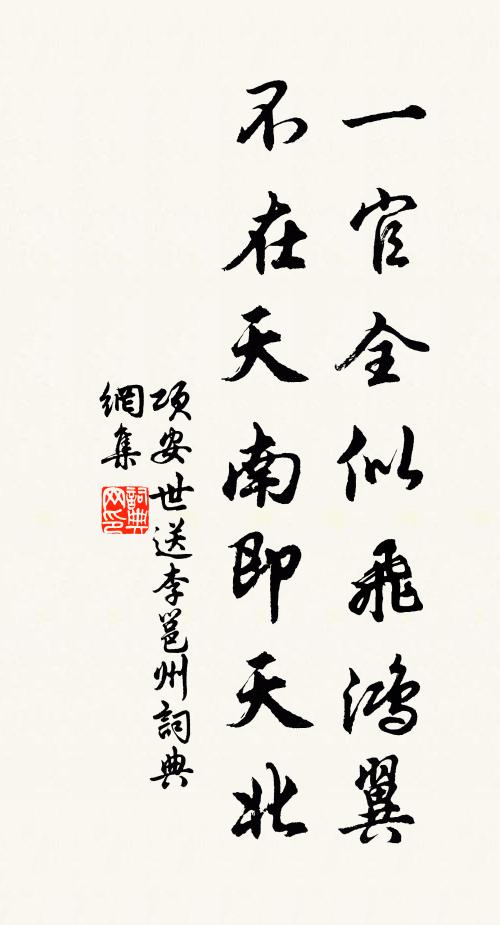 一官全似飛鴻翼
不在天南即天北
項安世送李邕州詞典
網集
詞典
网印